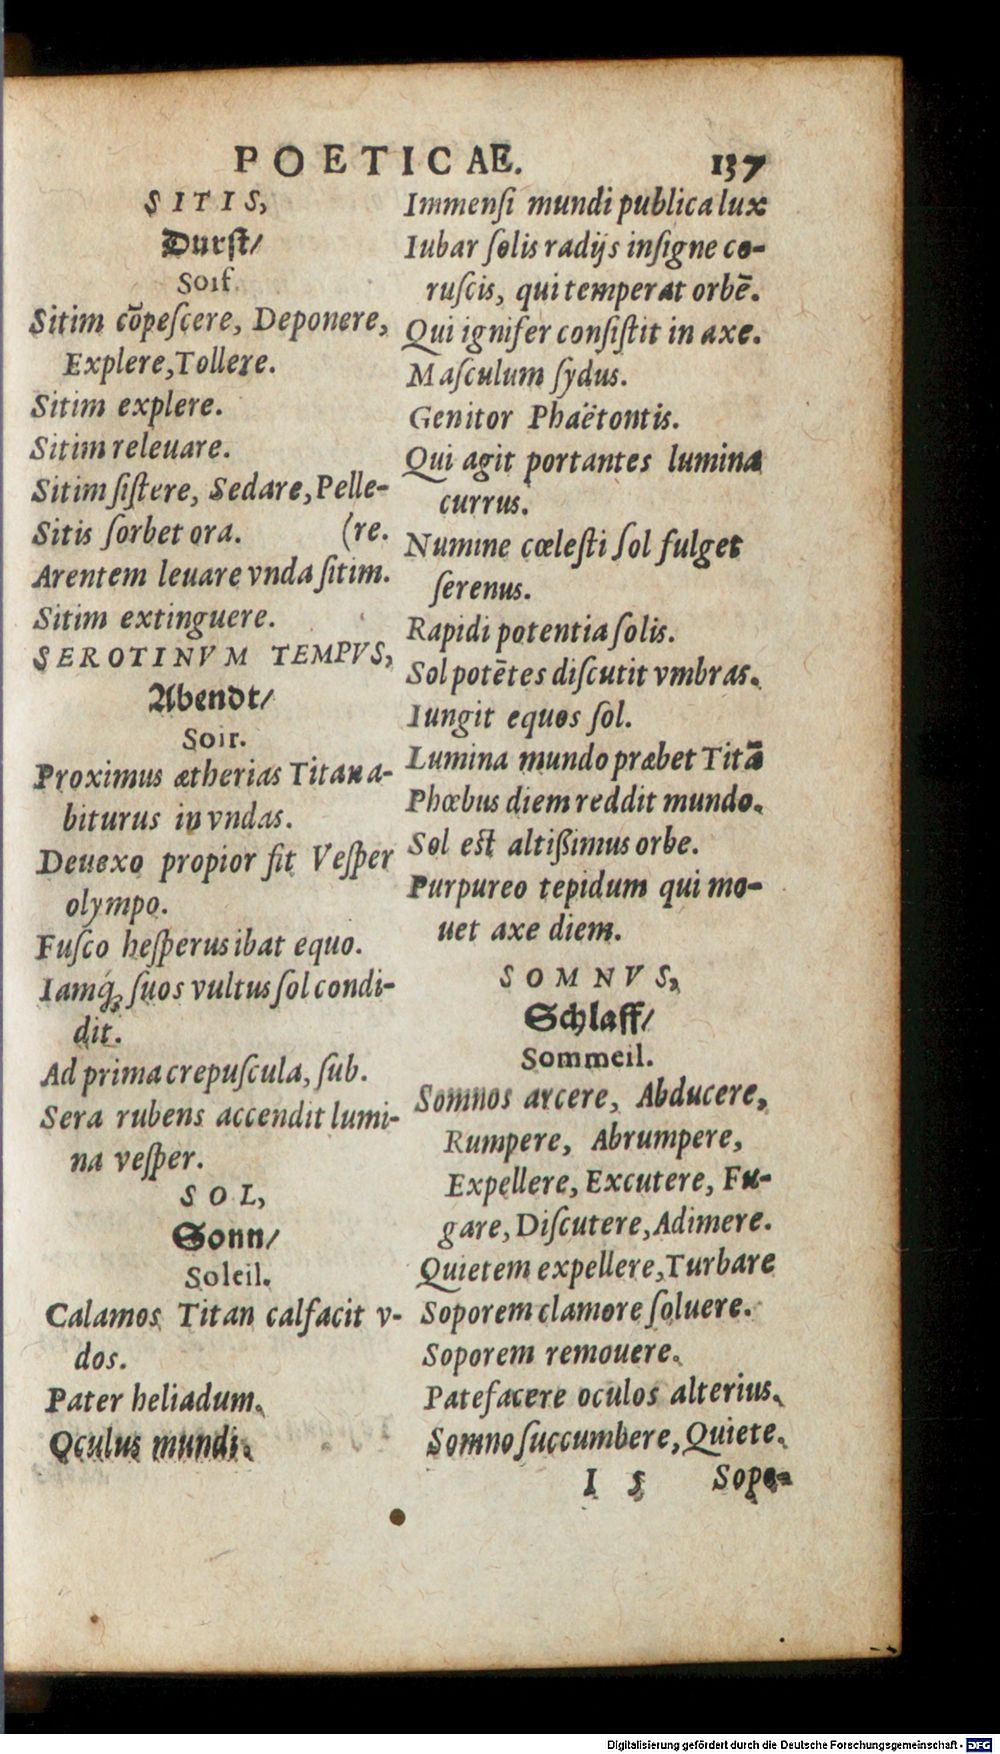 POETICAE. 137
SITIS,
Durst/
Soif.
Sitim cõpeſcere, Deponere,
Explere, Tollere.
Sitim explere.
Sitim releuare.
Sitim ſiſtere, Sedare, Pelle-
Sitis ſorbet ora. (re.
Arentem leuare vnda ſitim.
Sitim extinguere.
SEROTINVM TEMPVS,
Abendt/
Soir.
Proximus ætherias Titan a-
biturus in vndas.
Deuexo propior fit Veſper
olympo.
Fuſco heſperus ibat equo.
Iamq́ꝫ ſuos vultus ſol condi-
dit.
Ad prima crepuſcula, ſub.
Sera rubens accendit lumi-
na veſper.
SOL,
Sonn/
Soleil.
Calamos Titan calfacit v-
dos.
Pater heliadum.
Oculus mundi.
Immenſi mundi publica lux
Iubar ſolis radijs inſigne co-
ruſcis, qui temperat orbẽ.
Qui ignifer conſiſtit in axe.
Maſculum ſydus.
Genitor Phaëtontis.
Qui agit portantes lumina
currus.
Numine cœleſti ſol fulget
ſerenus.
Rapidi potentia ſolis.
Sol potẽtes diſcutit vmbras.
Iungit equos ſol.
Lumina mundo præbet Titã
Phœbus diem reddit mundo.
Sol eſt altißimus orbe.
Purpureo tepidum qui mo-
uet axe diem.
SOMNVS,
Schlaff/
Sommeil.
Somnos arcere, Abducere,
Rumpere, Abrumpere,
Expellere, Excutere, Fu-
gare, Diſcutere, Adimere.
Quietem expellere, Turbare
Soporem clamore ſoluere.
Soporem remouere.
Patefacere oculos alterius.
Somno ſuccumbere, Quiete.
I 5 Sopo-
Digitalisierung gefördert durch die Deutsche Forschungsgemeinschaft - DFG